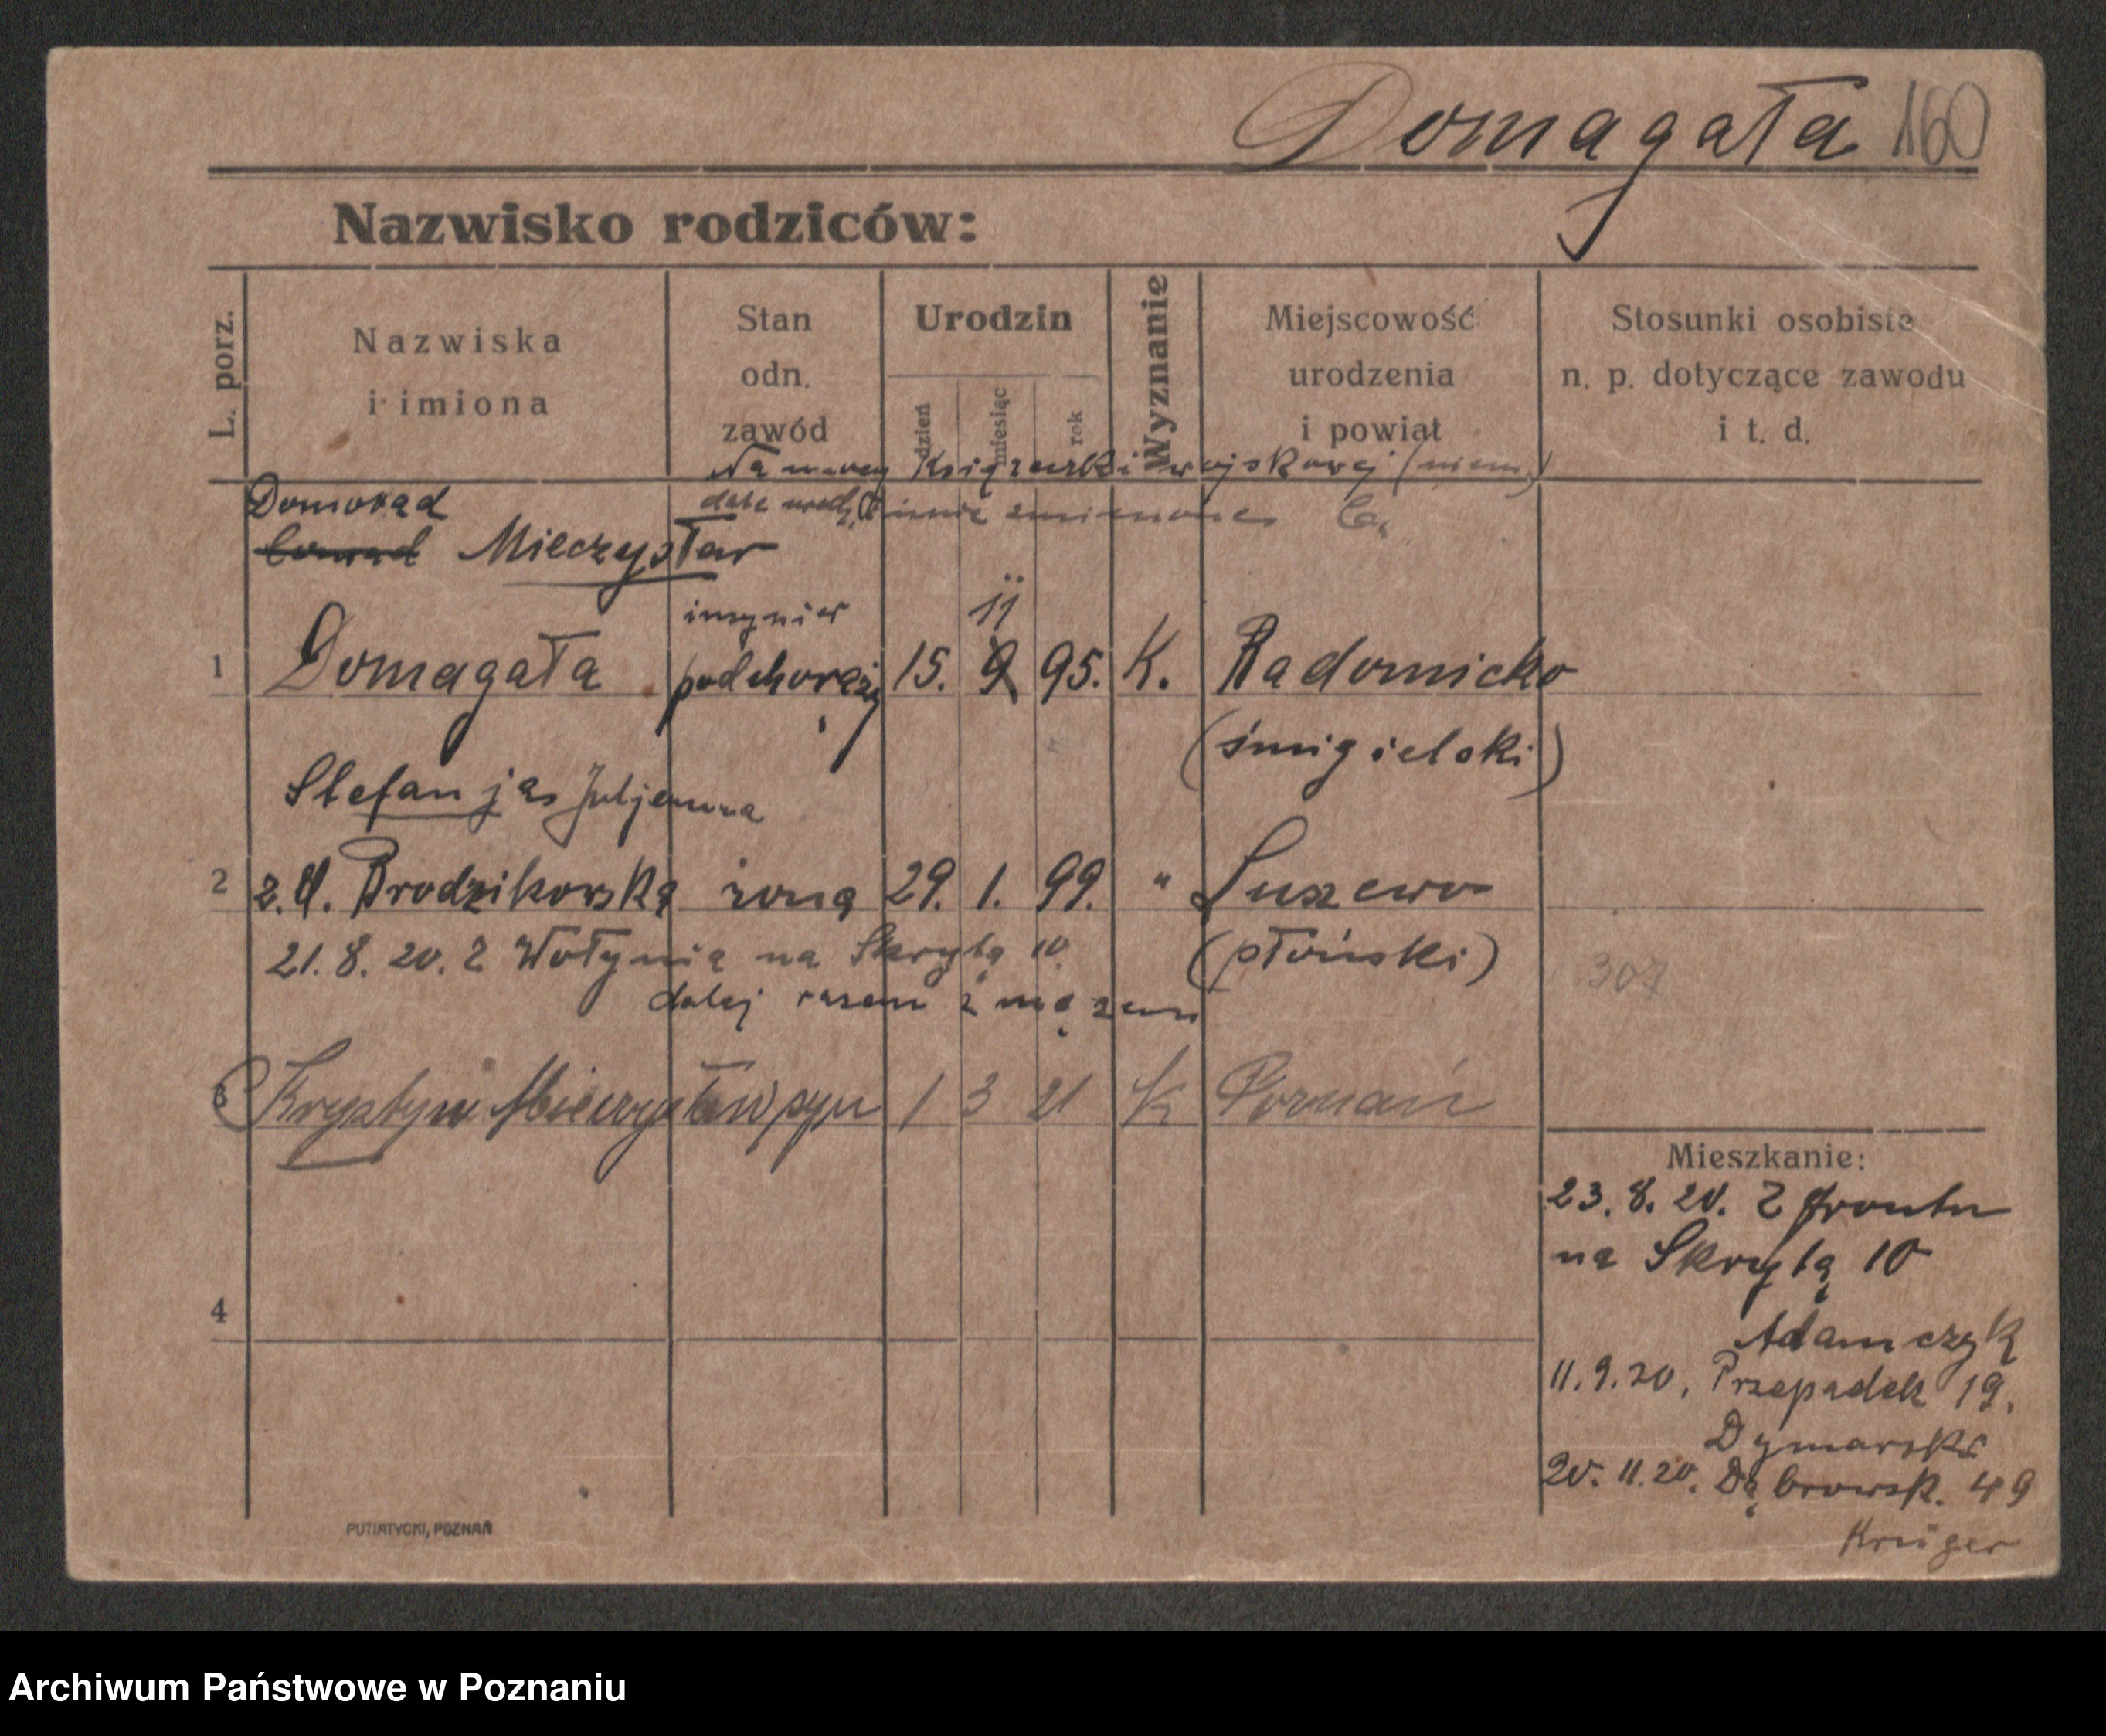 Domagała 160
Nazwisko rodziców:
L. porz.
Nazwiska
i imiona
Stan
odn.
zawód
Urodzin
dzień
miesiąc
rok
Wyznanie
Miejscowość
urodzenia
i powiat
Stosunki osobiste
n. p. dotyczące zawodu
i t. d.
Na mocy książeczki wojskowej (niem.)
datę urodz. i imię zmieniono
Domorad
Conrad Mieczysław
inżynier 11
1 Domagała podchorąży 15. 9 95. K. Radomicko
(śmigielski)
Stefanja Juljanna
2 z. d. Brodzikowska żona 29. 1. 99. " Luszewo
21. 8. 20. z Wołynia na Skrytą 10 (płoński)
307
dalej razem z mężem
3 Krystyn Mieczysław syn 1 3 21 K Poznań
Mieszkanie:
23. 8. 20. z frontu
na Skrytą 10
4
Adamczyk
11. 9. 20. Przepadek 19.
Dymarski
20. 11. 20. Dąbrowsk. 49
Krüger
PUTIATYCKI, POZNAŃ
Archiwum Państwowe w Poznaniu